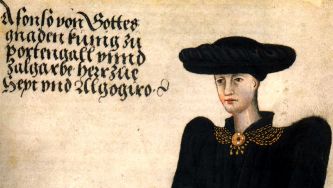 Afonso von Gottes
gnaden kunig zu
portengall vnnd
zalgarbe herr zu
Sept vnd Algogiro